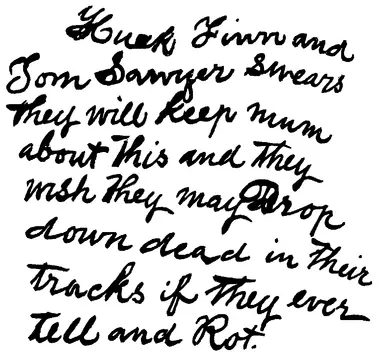 Huck Finn and
Tom Sawyer swears
they will keep mum
about This and They
wish They may Drop
down dead in Their
tracks if They ever
tell and Rot.